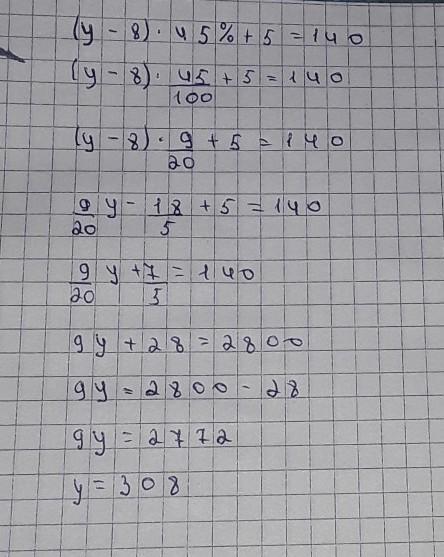 (y - 8) · 45% + 5 = 140
(y - 8) · 45/100 + 5 = 140
(y - 8) · 9/20 + 5 = 140
9/20 y - 18/5 + 5 = 140
9/20 y + 7/5 = 140
9y + 28 = 2800
9y = 2800 - 28
9y = 2772
y = 308